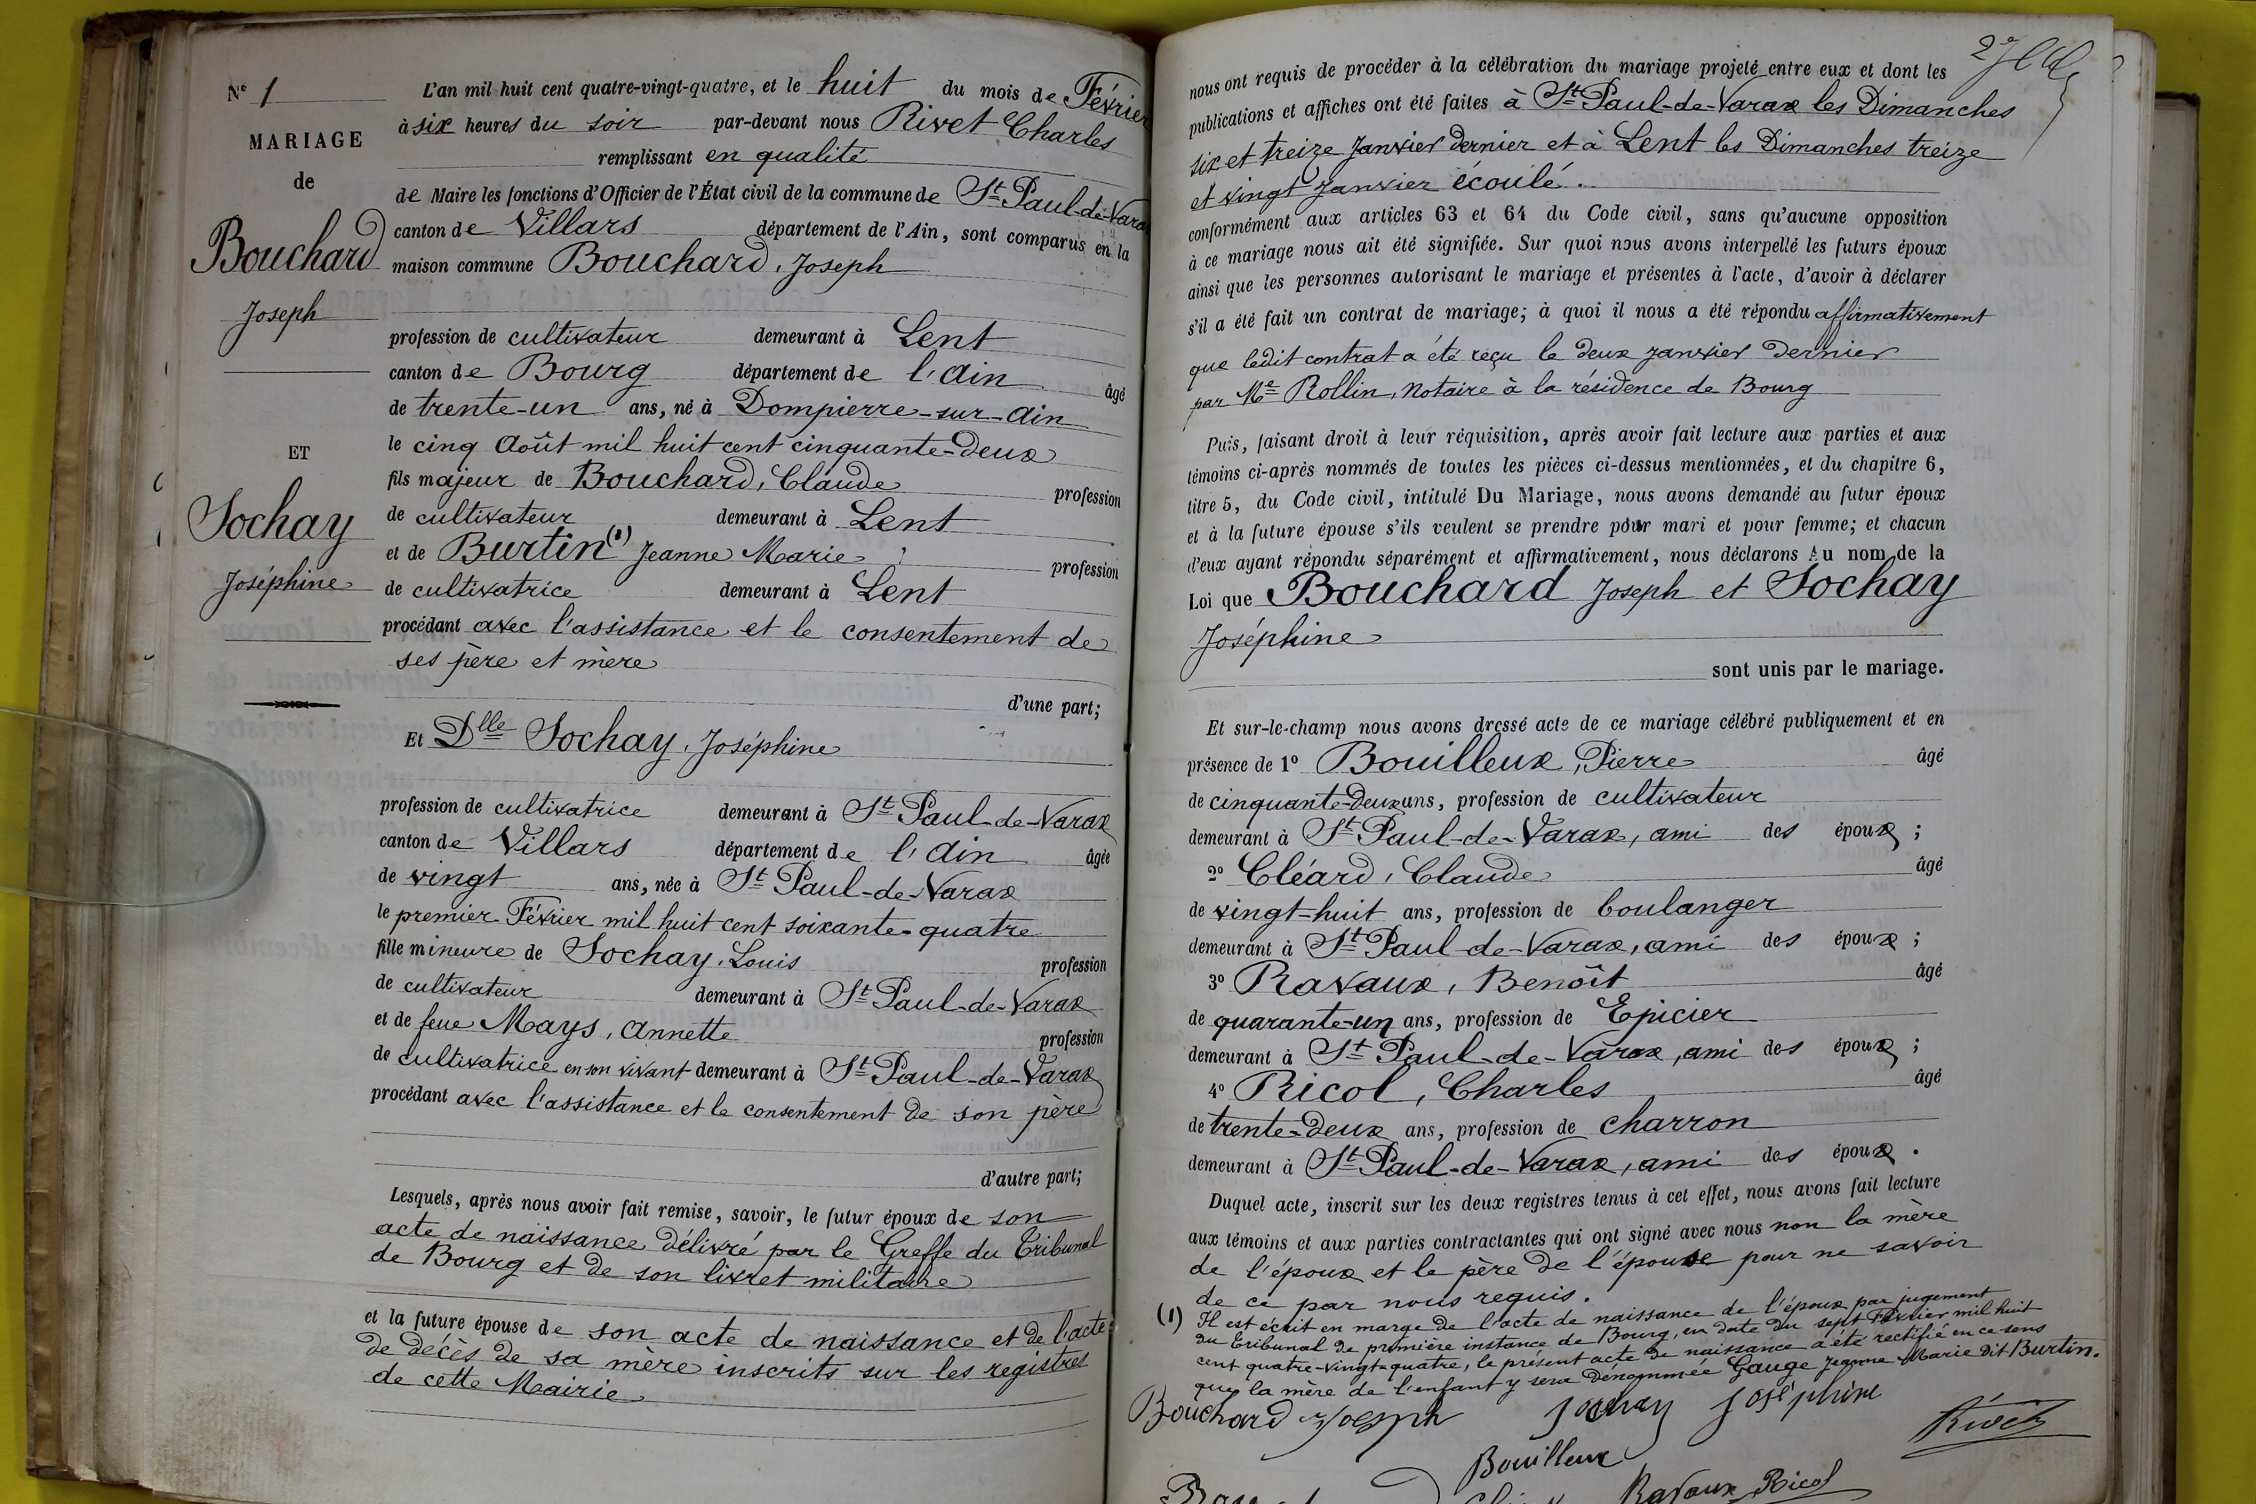 N° 1
MARIAGE
de
Bouchard
Joseph
ET
Sochay
Joséphine
L'an mil huit cent quatre-vingt-quatre, et le huit du mois de Février
à six heures du soir par-devant nous Rivet Charles
remplissant en qualité
de Maire les fonctions d'Officier de l'État civil de la commune de St Paul-de-Varax
canton de Villars département de l'Ain, sont comparus en la
maison commune Bouchard, Joseph
profession de cultivateur demeurant à Lent
canton de Bourg département de l'Ain âgé
de trente-un ans, né à Dompierre-sur-Ain
le cinq Août mil huit cent cinquante-deux
fils majeur de Bouchard, Claude profession
de cultivateur demeurant à Lent
et de Burtin (1) Jeanne Marie profession
de cultivatrice demeurant à Lent
procédant avec l'assistance et le consentement de
ses père et mère
d'une part;
Et Dlle Sochay, Joséphine
profession de cultivatrice demeurant à St Paul-de-Varax
canton de Villars département de l'Ain âgée
de vingt ans, née à St Paul-de-Varax
le premier Février mil huit cent soixante-quatre
fille mineure de Sochay, Louis profession
de cultivateur demeurant à St Paul-de-Varax
et de feue Mays, Annette profession
de cultivatrice en son vivant demeurant à St Paul-de-Varax
procédant avec l'assistance et le consentement de son père
d'autre part;
Lesquels, après nous avoir fait remise, savoir, le futur époux de son
acte de naissance délivré par le Greffe du Tribunal
de Bourg et de son livret militaire
et la future épouse de son acte de naissance et de l'acte
de décès de sa mère inscrits sur les registres
de cette Mairie
nous ont requis de procéder à la célébration du mariage projeté entre eux et dont les
publications et affiches ont été faites à St Paul-de-Varax les Dimanches
six et treize Janvier dernier et à Lent les Dimanches treize
et vingt Janvier écoulé.
conformément aux articles 63 et 64 du Code civil, sans qu'aucune opposition
à ce mariage nous ait été signifiée. Sur quoi nous avons interpellé les futurs époux
ainsi que les personnes autorisant le mariage et présentes à l'acte, d'avoir à déclarer
s'il a été fait un contrat de mariage; à quoi il nous a été répondu affirmativement
que ledit contrat a été reçu le deux janvier dernier
par Me Rollin, Notaire à la résidence de Bourg
Puis, faisant droit à leur réquisition, après avoir fait lecture aux parties et aux
témoins ci-après nommés de toutes les pièces ci-dessus mentionnées, et du chapitre 6,
titre 5, du Code civil, intitulé Du Mariage, nous avons demandé au futur époux
et à la future épouse s'ils veulent se prendre pour mari et pour femme; et chacun
d'eux ayant répondu séparément et affirmativement, nous déclarons Au nom de la
Loi que Bouchard Joseph et Sochay
Joséphine
sont unis par le mariage.
Et sur-le-champ nous avons dressé acte de ce mariage célébré publiquement et en
présence de 1° Bouilleux, Pierre âgé
de cinquante-deux ans, profession de cultivateur
demeurant à St Paul-de-Varax, ami des époux ;
2° Cléard, Claude âgé
de vingt-huit ans, profession de boulanger
demeurant à St Paul-de-Varax, ami des époux ;
3° Ravaux, Benoît âgé
de quarante-un ans, profession de Epicier
demeurant à St Paul-de-Varax, ami des époux ;
4° Ricol, Charles âgé
de trente-deux ans, profession de charron
demeurant à St Paul-de-Varax, ami des époux .
Duquel acte, inscrit sur les deux registres tenus à cet effet, nous avons fait lecture
aux témoins et aux parties contractantes qui ont signé avec nous non la mère
de l'époux et le père de l'épouse pour ne savoir
de ce par nous requis.
(1) Il est écrit en marge de l'acte de naissance de l'époux par jugement
du Tribunal de première instance de Bourg, en date du sept Février mil huit
cent quatre-vingt-quatre, le présent acte de naissance a été rectifié en ce sens
que la mère de l'enfant y sera dénommée Gauge Jeanne Marie dit Burtin.
Bouchard Joseph Sochay Joséphine
Rivet
Bouilleux
Ravaux Ricol